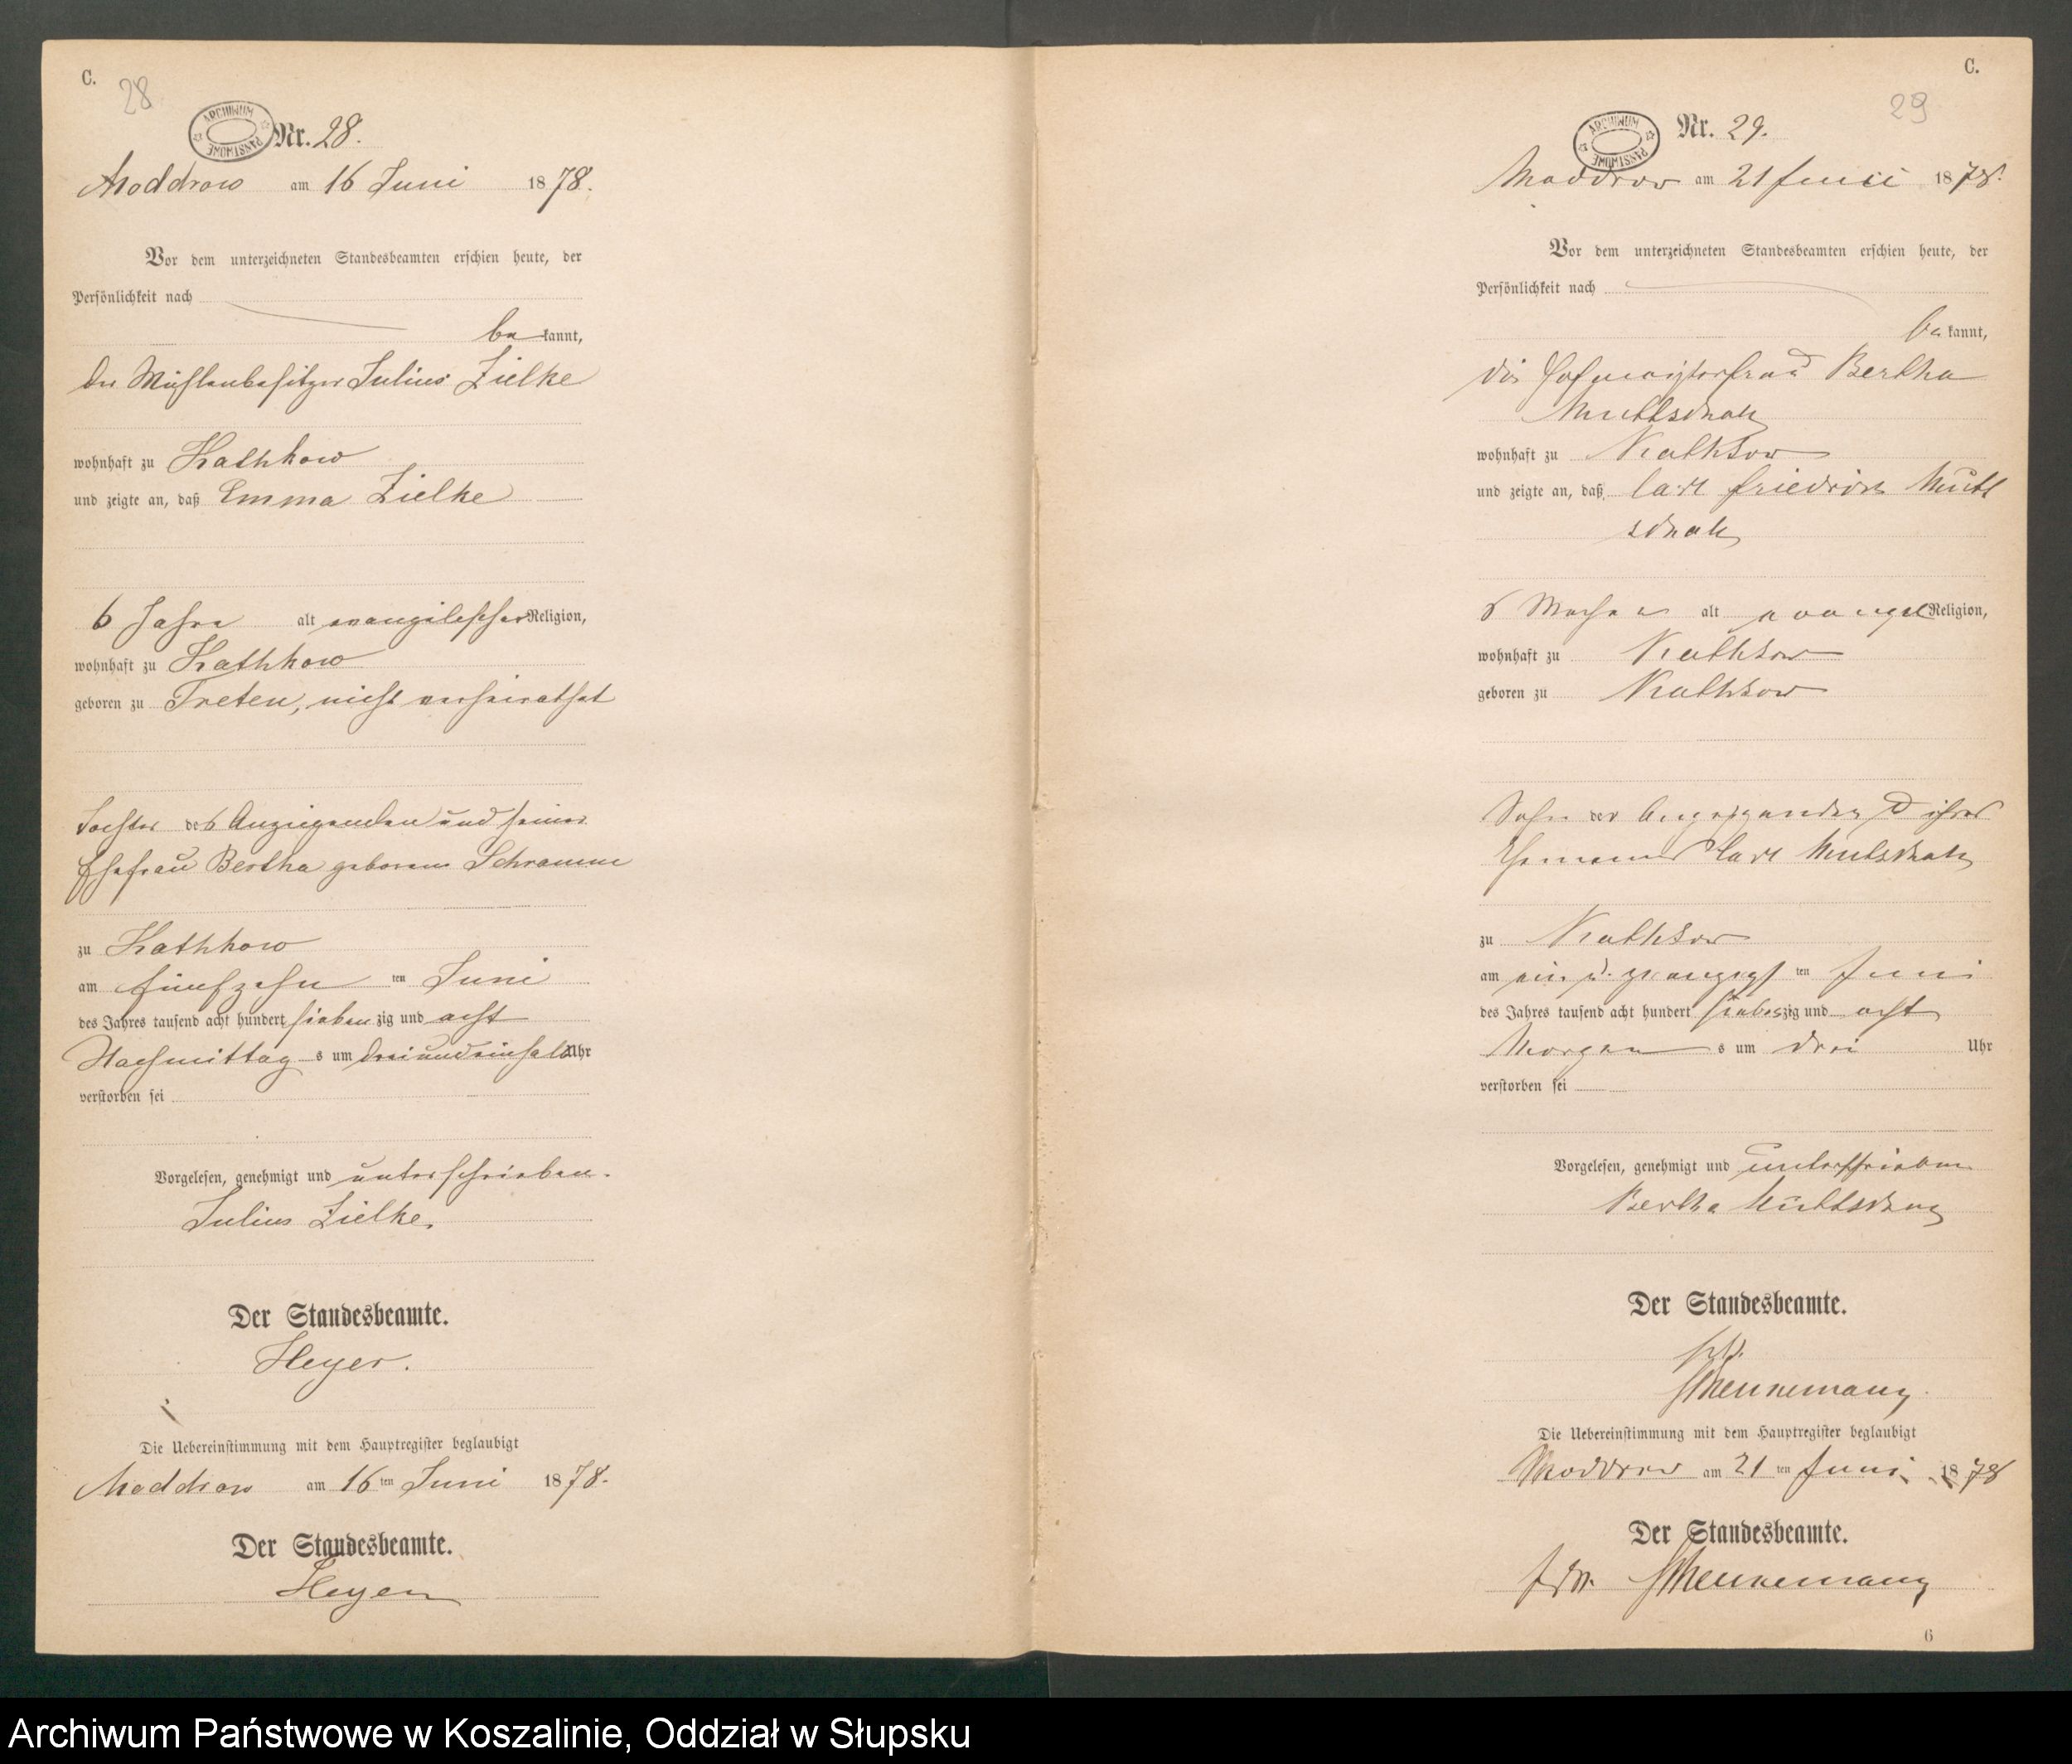 C.
28
ARCHIWUM PAŃSTWOWE
Nr. 28.
Moddrow am 16 Juni 1878.
Vor dem unterzeichneten Standesbeamten erschien heute, der
Persönlichkeit nach
bekannt,
der Mühlenbesitzer Julius Zielke
wohnhaft zu Kathkow
und zeigte an, daß Emma Zielke
6 Jahre alt evangelischer Religion,
wohnhaft zu Kathkow
geboren zu Treten, nicht verheirathet
Tochter des Anzeigenden und seiner
Ehefrau Bertha geborene Schramm
zu Kathkow
am fünfzehnten Juni
des Jahres tausend acht hundert siebenzig und acht
Nachmittags um drei und einhalb Uhr
verstorben sei
Vorgelesen, genehmigt und unterschrieben.
Julius Zielke.
Der Standesbeamte.
Heyer.
Die Uebereinstimmung mit dem Hauptregister beglaubigt
Moddrow am 16ten Juni 1878.
Der Standesbeamte.
Heyer
C.
29
ARCHIWUM PAŃSTWOWE
Nr. 29.
Moddrow am 21 Juni 1878.
Vor dem unterzeichneten Standesbeamten erschien heute, der
Persönlichkeit nach
bekannt,
die Hofmeisterfrau Bertha
wohnhaft zu Kathkow
und zeigte an, daß Carl Friedrich
6 Wochen alt evangel Religion,
wohnhaft zu Kathkow
geboren zu Kathkow
Sohn der Anzeigenden u ihres
Ehemannes Carl
zu Kathkow
am ein u. zwanzigsten Juni
des Jahres tausend acht hundert siebenzig und acht
Morgens um drei Uhr
verstorben sei
Vorgelesen, genehmigt und unterschrieben
Bertha
Der Standesbeamte.
Die Uebereinstimmung mit dem Hauptregister beglaubigt
Moddrow am 21ten Juni 1878
Der Standesbeamte.
6
Archiwum Państwowe w Koszalinie, Oddział w Słupsku